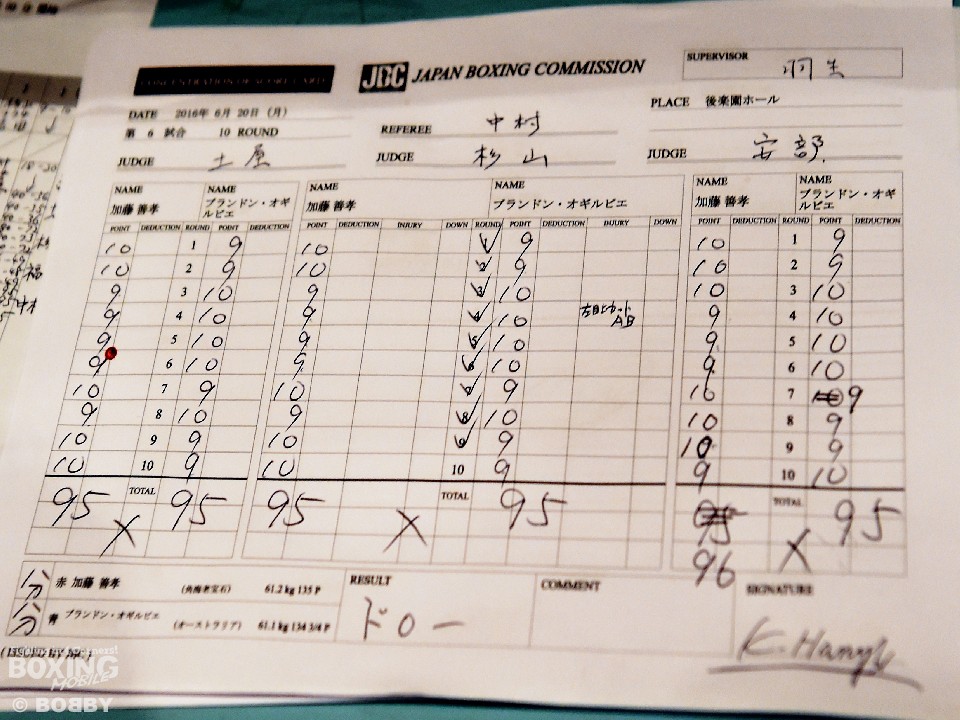 CONCENTRATION OF SCORE CARD
JBC JAPAN BOXING COMMISSION
SUPERVISOR 羽生
DATE 2016年 6月 20日 (月)
PLACE 後楽園ホール
第 6 試合 10 ROUND
REFEREE 中村
JUDGE 土屋
JUDGE 杉山
JUDGE 安部
NAME NAME NAME NAME NAME NAME
加藤 善孝 ブランドン・オギルビエ 加藤 善孝 ブランドン・オギルビエ 加藤 善孝 ブランドン・オギルビエ
POINT DEDUCTION ROUND POINT DEDUCTION POINT DEDUCTION INJURY DOWN ROUND POINT DEDUCTION INJURY DOWN POINT DEDUCTION ROUND POINT DEDUCTION
10 1 9 10 1 9 10 1 9
10 2 9 10 2 9 10 2 9
9 3 10 9 3 10 10 3 10
9 4 10 9 4 10 AB 9 4 10
9 5 10 9 5 10 9 5 10
9 6 10 9 6 10 9 6 10
10 7 9 10 7 9 10 7 10 9
9 8 10 9 8 10 10 8 9
10 9 9 10 9 9 10 9 9
10 10 9 10 10 9 9 10 10
95 TOTAL 95 95 TOTAL 95 95 TOTAL 95
X X X
96
1分 赤 加藤 善孝 (角海老宝石) 61.2 kg 135 P
1分 青 ブランドン・オギルビエ (オーストラリア) 61.1 kg 134 3/4 P
RESULT ドロー
COMMENT
SIGNATURE
(ISSUED BY JBC)
BOXING
MOBILE
© BOBBY